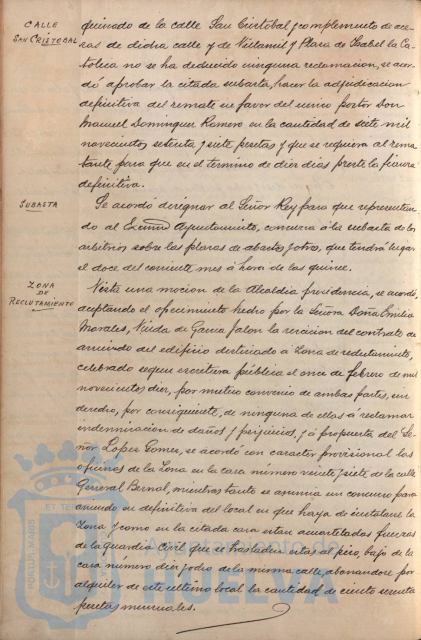 CALLE
SAN CRISTOBAL
quinado de la calle San Cristobal y complemento de ace-
ras de dicha calle y de Vulamil y Plaza de Isabel la Ca-
tolica no se ha deducido ninguna reclamacion, se acor-
dó aprobar la citada subasta, hacer la adjudicacion
definitiva del remate en favor del unico postor Don
Manuel Dominguez Romero en la cantidad de siete mil
novecientos setenta y siete pesetas y que se requiera al rema
tante para que en el termino de diez dias preste la fianza
definitiva.
SUBASTA
Se acordó designar al Señor Rey para que representan
do al Excmo Ayuntamiento, concurra á la subasta de los
arbitrios sobre las plazas de abastos y otro, que tendrá lugar
el doce del corriente mes á hora de las quince.
ZONA
DE
RECLUTAMIENTO
Vista una mocion de la Alcaldia presidencia, se acordó,
aceptando el ofrecimiento hecho por la Señora Doña Emilia
Morales, Viuda de Garcia Jalon la rescision del contrato de
arriendo del edificio destinado á Zona de reclutamiento,
celebrado segun escritura pública el once de febrero de mil
novecientos diez, por mutuo convenio de ambas partes, sin
derecho, por consiguiente, de ninguna de ellas á reclamar
indemnizacion de daños y perjuicios, y á propuesta del Se-
ñor Lopez Gomez, se acordó con caracter provisional las
oficinas de la Zona en la casa número veinte y siete de la calle
General Bernal, mientras tanto se anuncia un concurso para
arriendo en definitiva del local en que haya de instalarse la
Zona y como en la citada casa estan acuarteladas fuerzas
de la guardia Civil que se trasladen estas al piso, bajo de la
casa número diez y ocho de la misma calle, abonandose por
alquiler de este ultimo local la cantidad de ciento sesenta
pesetas mensuales.
PORTUS MARIS
ET TERR
Ayuntamiento
HUELVA